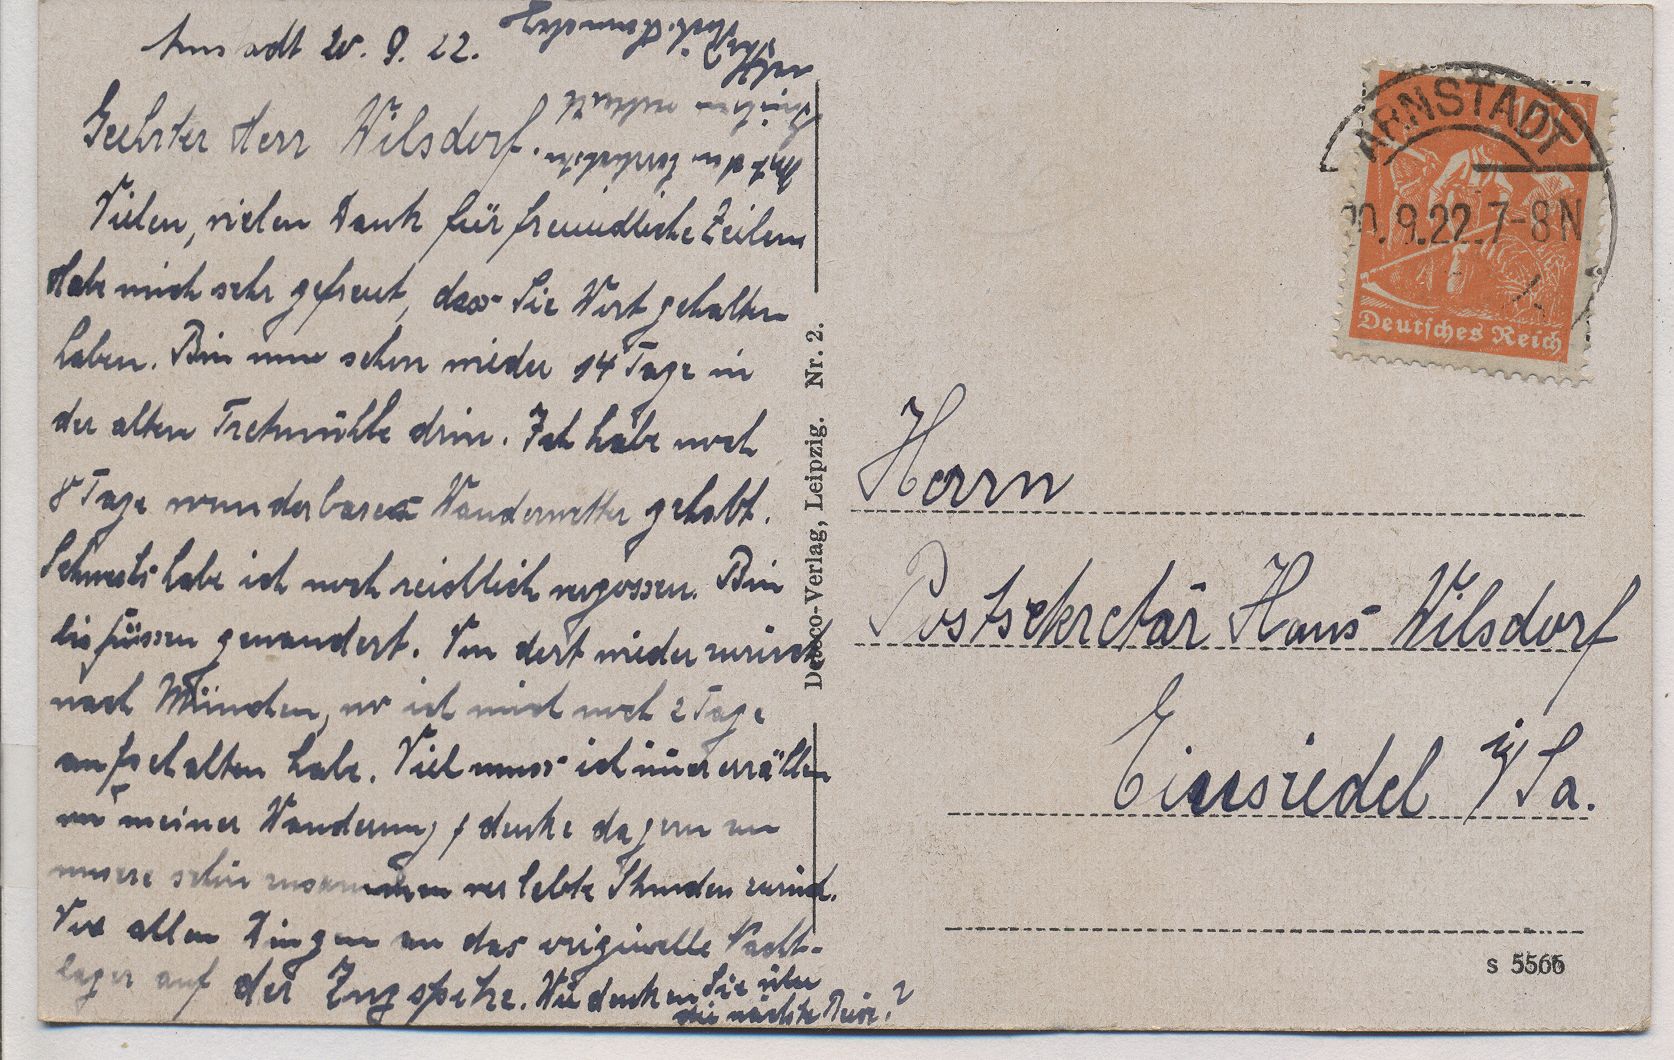 Arnstadt 20. 9. 22.
Geehrter Herr Wilsdorf.
Vielen, vielen Dank für freundliche Zeilen
Habe mich sehr gefreut, dass Sie Wort gehalten
haben. Bin nun schon wieder 14 Tage in
der alten Tretmühle drin. Ich habe noch
8 Tage wunderbares Wanderwetter gehabt.
Schweiss habe ich noch reichlich vergossen. Bin
bis Füssen gewandert. Von dort wieder zurück
nach München, wo ich mich noch 2 Tage
aufgehalten habe. Viel muss ich immer erzählen
von meiner Wanderung & denke da gern an
unsere schön zusammen verlebte Stunden zurück.
Vor allen Dingen an das originelle Nacht-
lager auf der Zugspitze. Wie denken Sie über
die nächste Reise?
Mit den herzlichsten
Grüssen verbleibt
Ihr
Deseco-Verlag, Leipzig. Nr. 2.
ARNSTADT
20.9.22.7-8N
150
Deutsches Reich
Herrn
Postsekretär Hans Wilsdorf
Einsiedel i/Sa.
s 5566